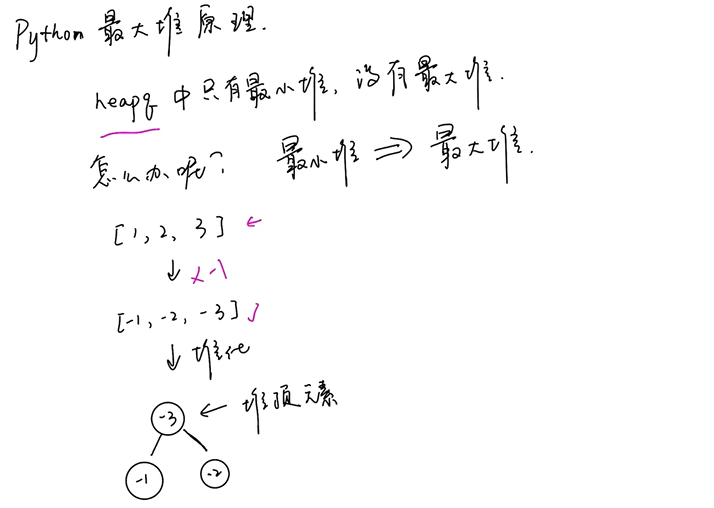 Python 最大堆原理.
heapq 中只有最小堆, 没有最大堆.
怎么办呢? 最小堆 ⇒ 最大堆.
[1, 2, 3] ←
↓ ×-1
[-1, -2, -3] ✓
↓ 堆化
-3 ← 堆顶元素
-1 -2